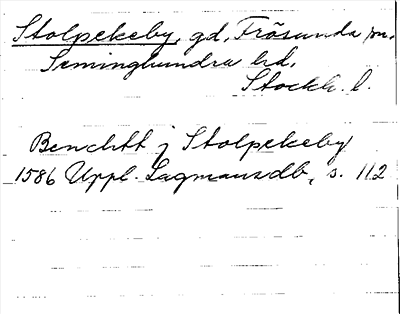 Stolpekeby, gd, Frösunda sn.
Seminghundra hd,
Stockh. l.
Benchtt j Stolpekeby
1586 Uppl. Lagmansdb, s. 112